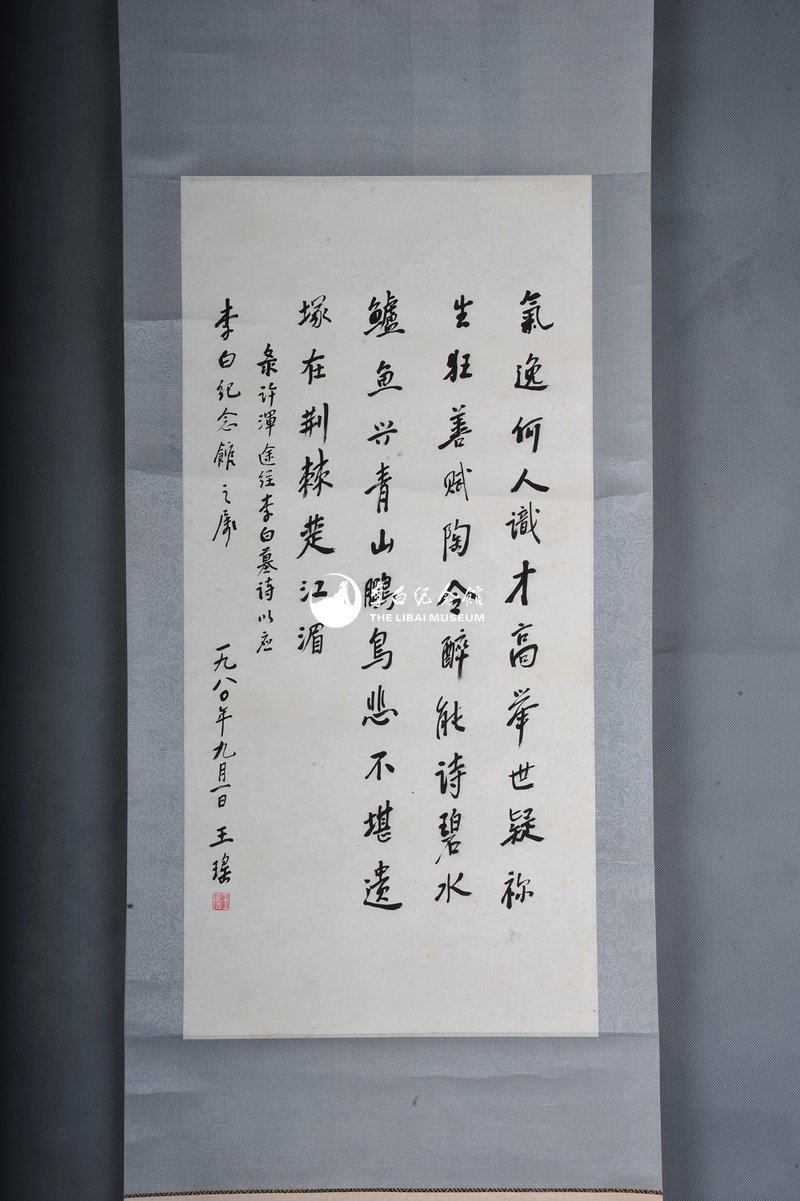 氣逸何人識才高举世疑祢
生狂善赋陶令醉能诗碧水
鱸鱼兴青山鵬鳥悲不堪遗
塚在荆棘楚江湄
录许渾途经李白墓诗以应
李白纪念館之属 一九八〇年九月一日 王瑤
李白纪念館
THE LIBAI MUSEUM